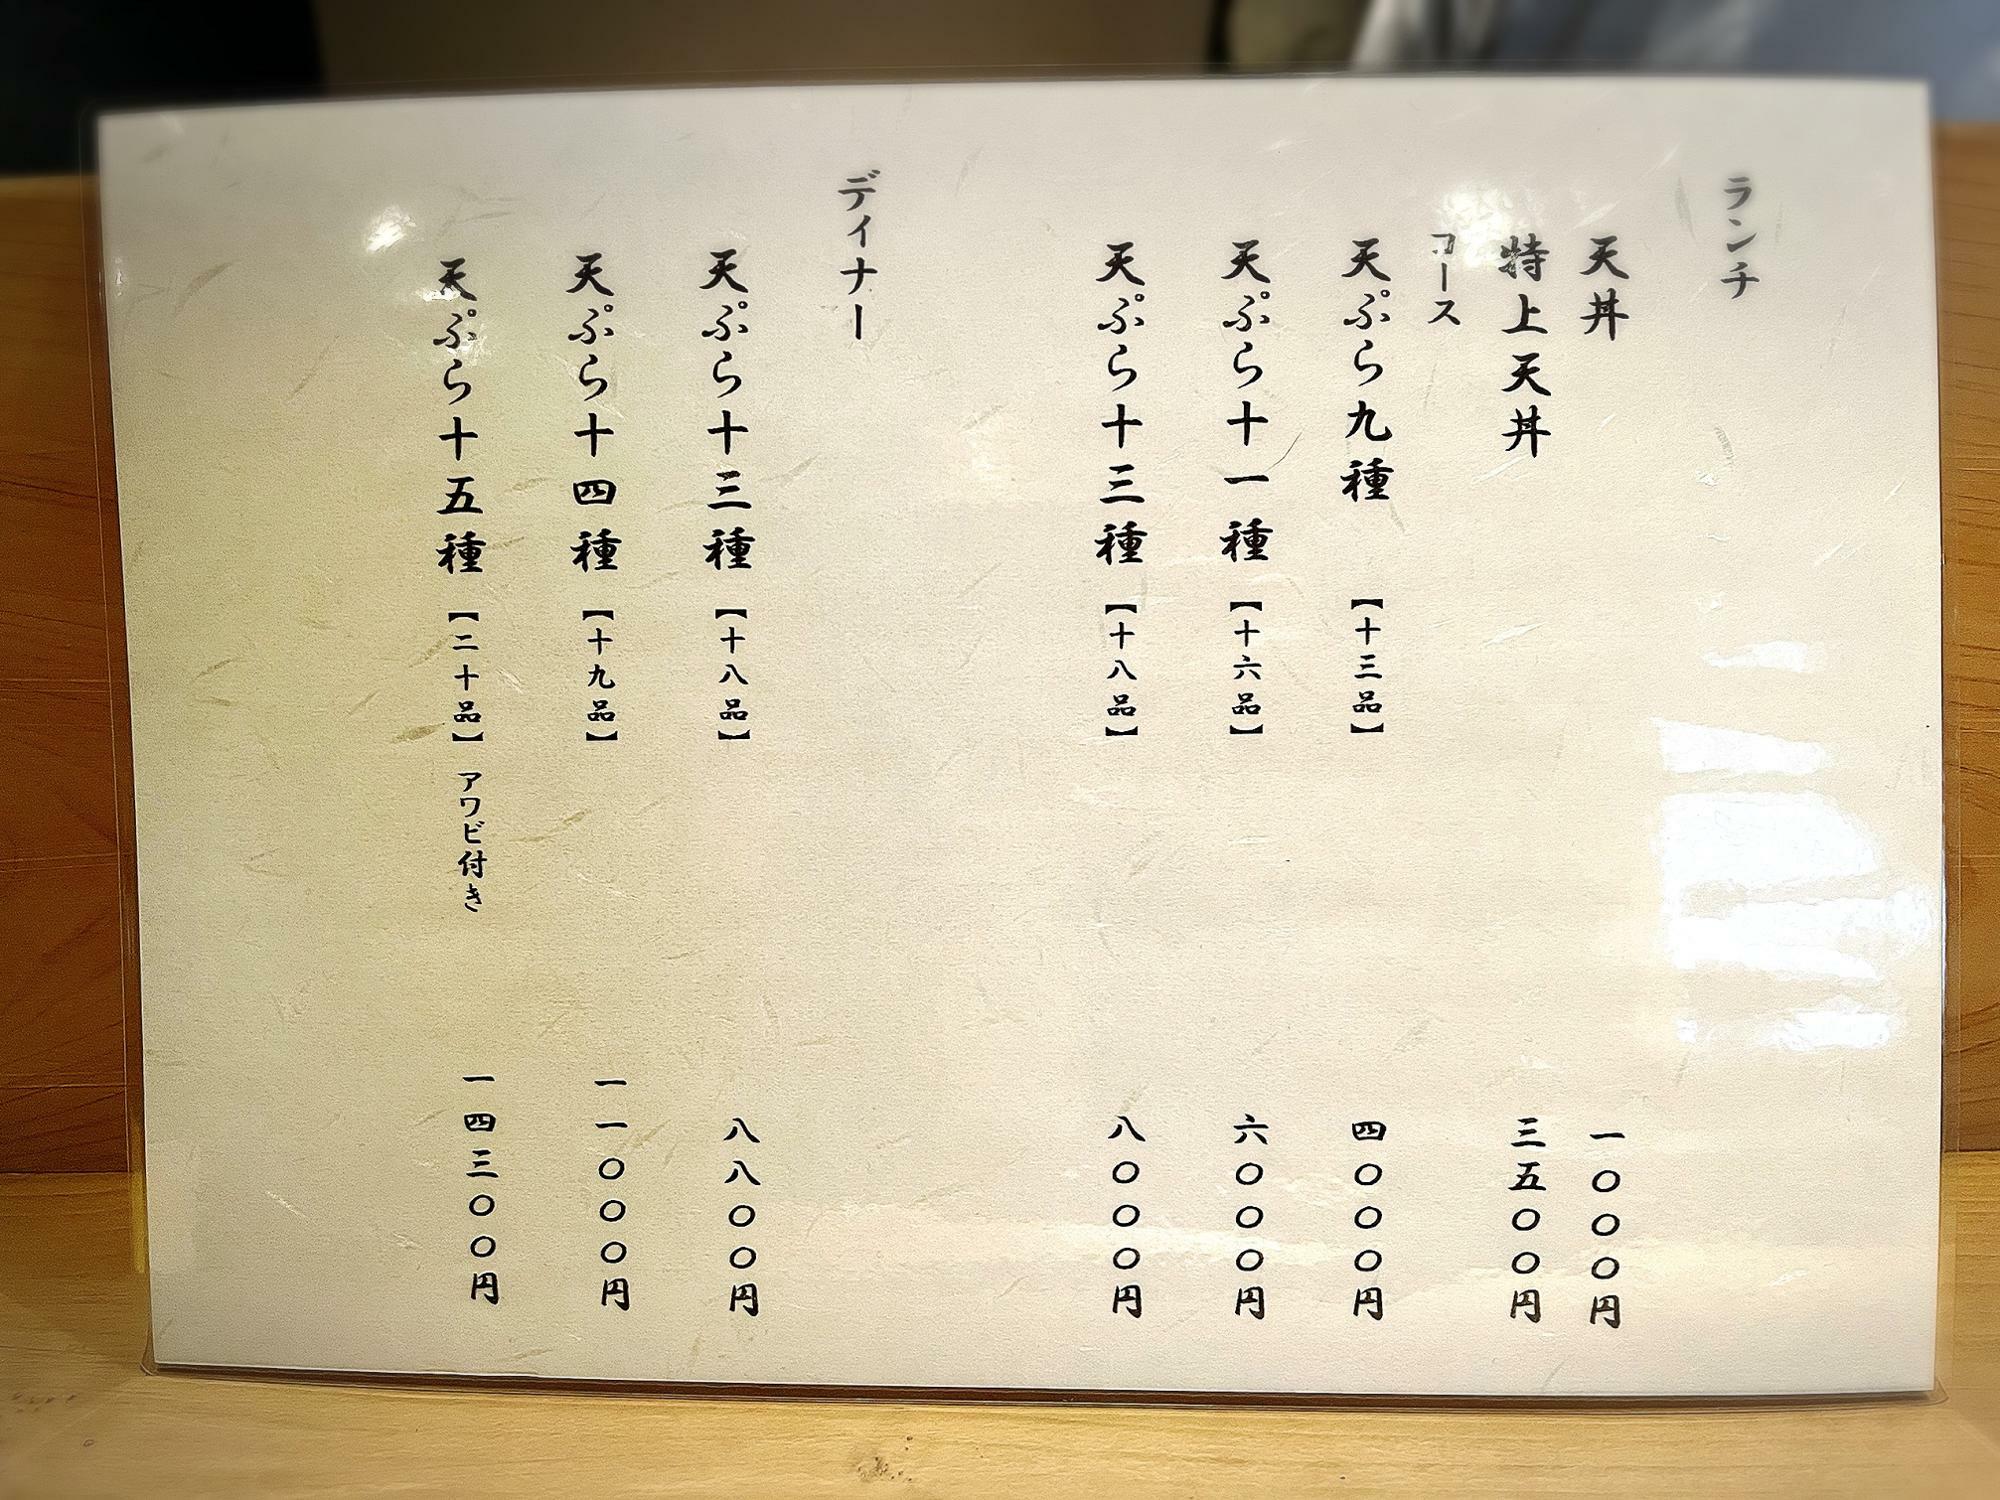 ランチ
天丼 一〇〇〇円
特上天丼 三五〇〇円
コース
天ぷら九種 【十三品】 四〇〇〇円
天ぷら十一種 【十六品】 六〇〇〇円
天ぷら十三種 【十八品】 八〇〇〇円
ディナー
天ぷら十三種 【十八品】 八八〇〇円
天ぷら十四種 【十九品】 一一〇〇〇円
天ぷら十五種 【二十品】 アワビ付き 一四三〇〇円